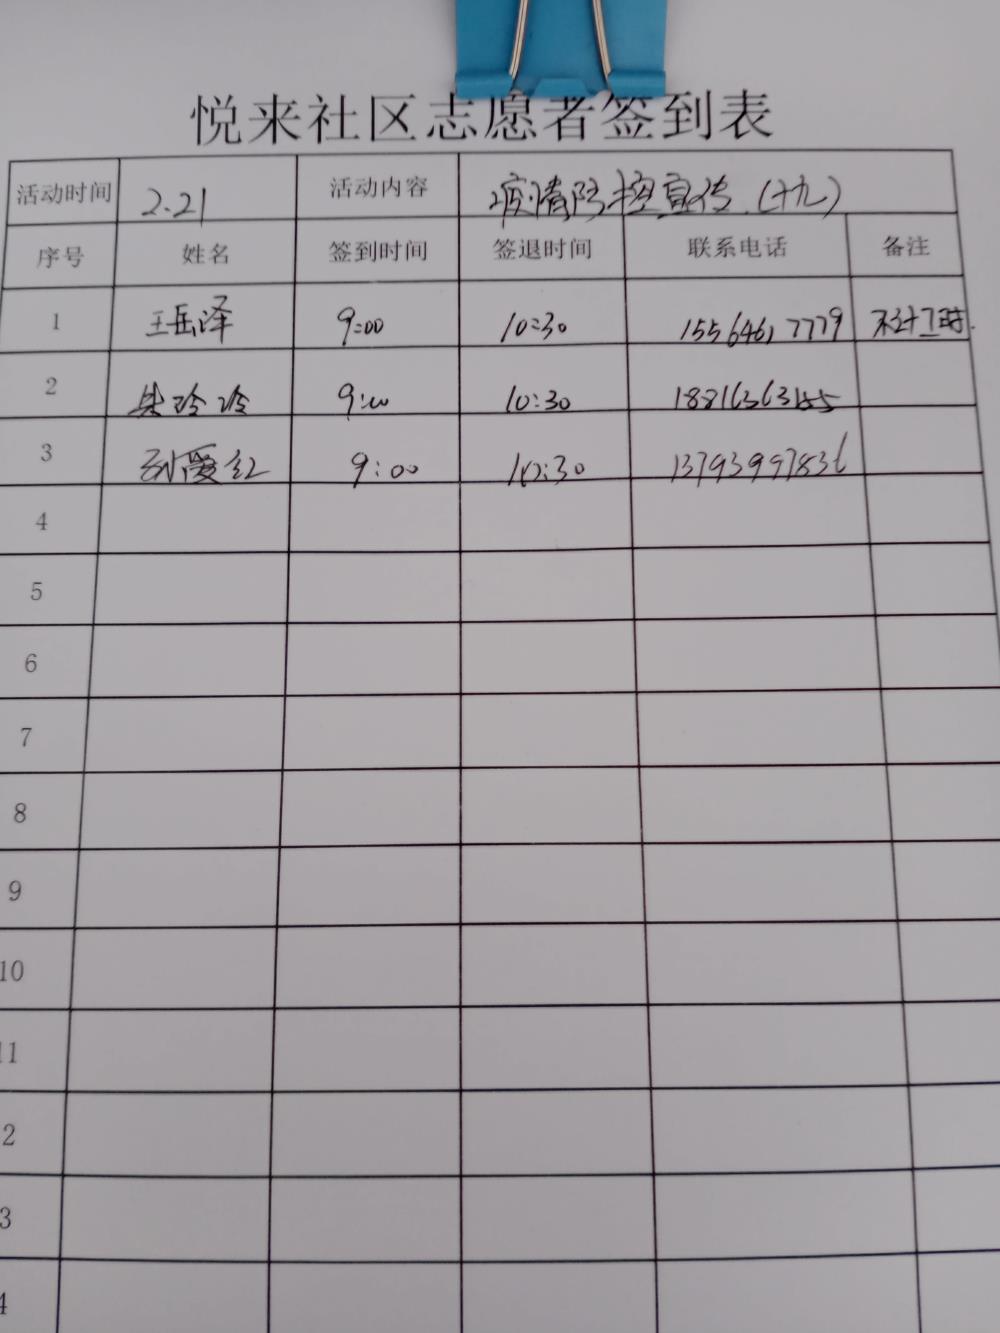 悦来社区志愿者签到表
活动时间 2.21 活动内容 疫情防控宣传(十九)
序号 姓名 签到时间 签退时间 联系电话 备注
1 王岳泽 9:00 10:30 15564617779 不计工时.
2 玲玲 9:00 10:30 18816363155
3 爱红 9:00 10:30 13793997836
4
5
6
7
8
9
10
11
2
3
4